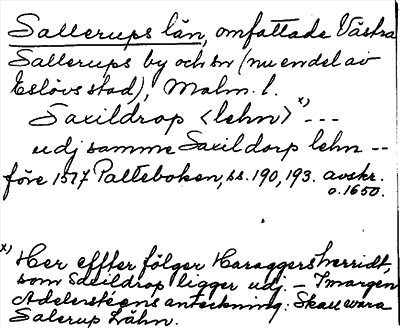 Sallerups län, omfattade Västra
Sallerups by och sn (nu en del av
Eslövs stad), Malm. l.
Saxildrop <lehn> x) ---
udj samme Saxildorp lehn --
före 1517 Palteboken, ss. 190, 193. avskr.
o. 1650.
x) Her effter fölger Haraggersherridt,
som Saxildrop ligger udj. – I margen
Adlersteens anteckning: Skall wara
Salerup Lähn.